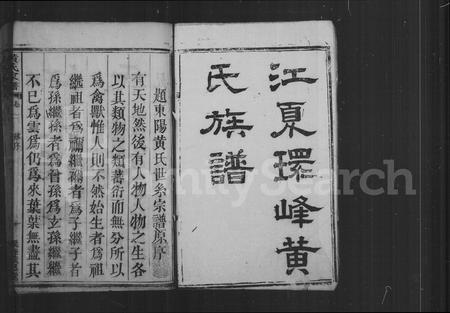 江夏環峰黄
氏族譜
題東陽黄氏世系宗譜原序
有天地然後有人物人物之生各
以其類物之類蕃衍而無分所以
為禽獸惟人則不然始生者為祖
繼祖者為禰繼禰者為子繼子者
為孫繼孫者為曾孫為玄孫繼繼
不已為雲為仍為來葉葉無盡其
FamilySearch